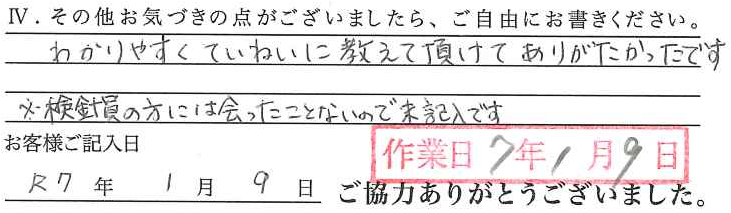 Ⅳ．その他お気づきの点がございましたら、ご自由にお書きください。
わかりやすくていねいに教えて頂けてありがたかったです
※検針員の方には会ったことないので未記入です
お客様ご記入日
作業日 7年 1月 9日
R7 年 1 月 9 日 ご協力ありがとうございました。